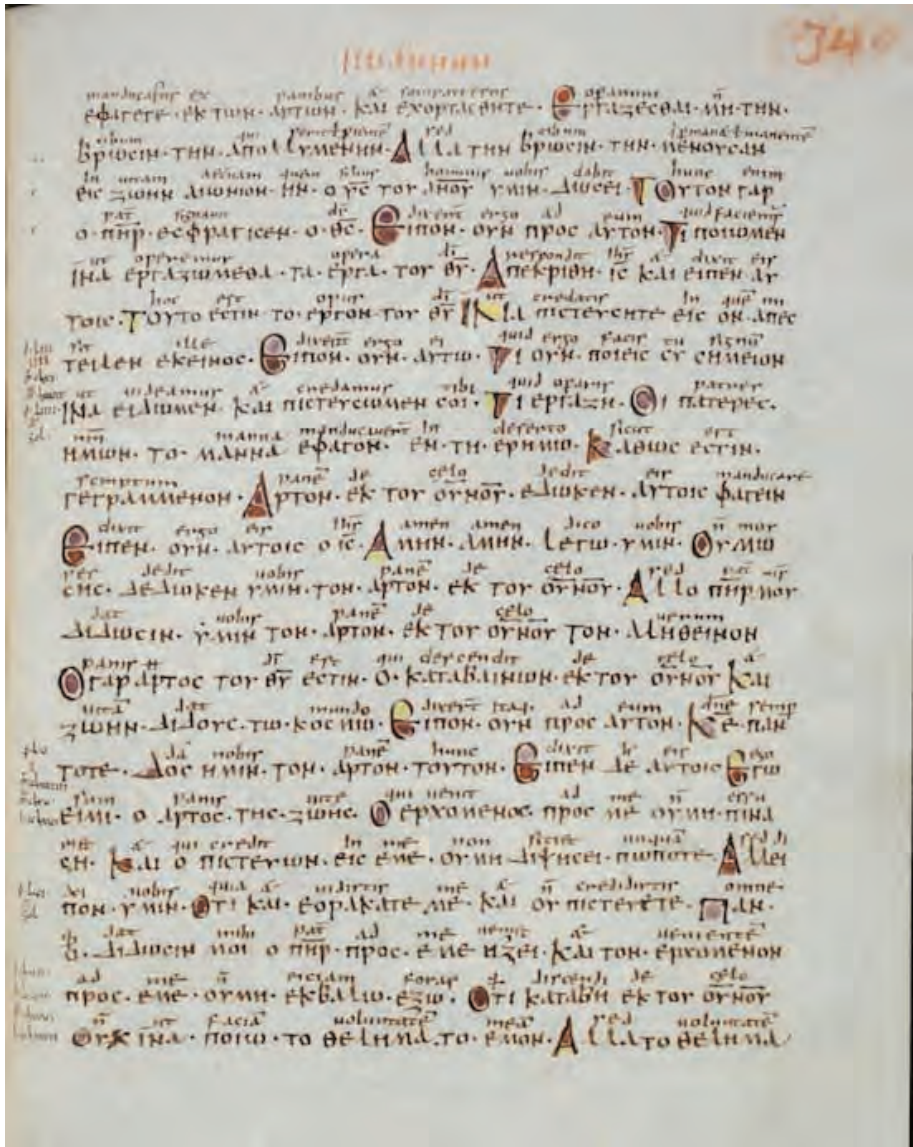 340
manducastis ex panibus &
ΕΦΑΓΕΤΕ · ΕΚ ΤΩΝ · ΑΡΤΩΝ · ΚΑΙ ΕΧΟΡΤΑΣΘΗΤΕ · ΕΡΓΑΖΕΣΘΑΙ · ΜΗ · ΤΗΝ ·
cibum qui sed cibum
ΒΡΩΣΙΝ · ΤΗΝ · ΑΠΟΛΛΥΜΕΝΗΝ · ΑΛΛΑ ΤΗΝ ΒΡΩΣΙΝ · ΤΗΝ · ΜΕΝΟΥΣΑΝ
In uitam quem filius hominis uobis dabit hunc enim
ΕΙΣ ΖΩΗΝ ΑΙΩΝΙΟΝ · ΗΝ · Ο ΥΣ̅ ΤΟΥ ΑΝ̅ΟΥ ΥΜΙΝ · ΔΩΣΕΙ · ΤΟΥΤΟΝ ΓΑΡ
pat̅ signauit ds̅ dixer̅t ergo ad eum
Ο · ΠΗ̅Ρ · ΕΣΦΡΑΓΙΣΕΝ · Ο · ΘΣ̅ · ΕΙΠΟΝ · ΟΥΝ ΠΡΟΣ ΑΥΤΟΝ · ΤΙ ΠΟΙΩΜΕΝ
ut operemur opera di̅ respondit ihs̅ & dixit eis
ΙΝΑ ΕΡΓΑΖΩΜΕΘΑ · ΤΑ · ΕΡΓΑ · ΤΟΥ ΘΥ̅ · ΑΠΕΚΡΙΘΗ · ΙΣ ΚΑΙ ΕΙΠΕΝ ΑΥ
hoc est opus di̅ ut credatis In que̅ mi
ΤΟΙΣ · ΤΟΥΤΟ ΕΣΤΙΝ · ΤΟ · ΕΡΓΟΝ · ΤΟΥ ΘΥ̅ ΙΝΑ ΠΙΣΤΕΥΣΗΤΕ ΕΙΣ ΟΝ · ΑΠΕΣ
sit ille dixer̅t ergo ei quid ergo facis tu signu̅
ΤΕΙΛΕΝ ΕΚΕΙΝΟΣ · ΕΙΠΟΝ · ΟΥΝ · ΑΥΤΩ · ΤΙ ΟΥΝ · ΠΟΙΕΙΣ ΣΥ ΣΗΜΕΙΟΝ
ut uideamus & credamus tibi quid operis patres
ΙΝΑ ΕΙΔΩΜΕΝ · ΚΑΙ ΠΙΣΤΕΥΣΩΜΕΝ ΣΟΙ · ΤΙ ΕΡΓΑΖΗ · ΟΙ ΠΑΤΕΡΕΣ ·
manna manducauer̅t In deserto sicut est
ΗΜΩΝ · ΤΟ · ΜΑΝΝΑ ΕΦΑΓΟΝ · ΕΝ · ΤΗ · ΕΡΗΜΩ · ΚΑΘΩΣ ΕΣΤΙΝ ·
scriptum pane̅ de celo dedit eis manducare
ΓΕΓΡΑΜΜΕΝΟΝ · ΑΡΤΟΝ · ΕΚ ΤΟΥ ΟΥΝ̅ΟΥ · ΕΔΩΚΕΝ · ΑΥΤΟΙΣ ΦΑΓΕΙΝ
dixit ergo eis Ihs̅ amen amen dico uobis n̅ mo
ΕΙΠΕΝ · ΟΥΝ · ΑΥΤΟΙΣ Ο ΙΣ̅ · ΑΜΗΝ · ΑΜΗΝ · ΛΕΓΩ · ΥΜΙΝ · ΟΥ ΜΩ
ses dedit uobis pane̅ de celo sed pat̅
ΣΗΣ · ΔΕΔΩΚΕΝ ΥΜΙΝ · ΤΟΝ · ΑΡΤΟΝ · ΕΚ ΤΟΥ ΟΥΝ̅ΟΥ · ΑΛΛΟ ΠΗ̅Ρ ΜΟΥ
dat uobis pane̅ de celo uerum
ΔΙΔΩΣΙΝ · ΥΜΙΝ ΤΟΝ · ΑΡΤΟΝ · ΕΚ ΤΟΥ ΟΥΝ̅ΟΥ ΤΟΝ · ΑΛΗΘΕΙΝΟΝ
panis di̅ est qui descendit de celo &
Ο ΓΑΡ ΑΡΤΟΣ ΤΟΥ ΘΥ̅ ΕΣΤΙΝ · Ο · ΚΑΤΑΒΑΙΝΩΝ · ΕΚ ΤΟΥ ΟΥΝ̅ΟΥ ΚΑΙ
uita̅ dat mundo dixer̅t ad eum dn̅e semp
ΖΩΗΝ · ΔΙΔΟΥΣ · ΤΩ · ΚΟΣΜΩ · ΕΙΠΟΝ · ΟΥΝ ΠΡΟΣ ΑΥΤΟΝ · ΚΕ̅ · ΠΑΝ
da nobis pane̅ hunc dixit eis ego
ΤΟΤΕ · ΔΟΣ ΗΜΙΝ · ΤΟΝ · ΑΡΤΟΝ · ΤΟΥΤΟΝ · ΕΙΠΕΝ ΔΕ ΑΥΤΟΙΣ ΕΓΩ
sum panis uite qui uenit ad me n̅ esu
ΕΙΜΙ · Ο ΑΡΤΟΣ · ΤΗΣ · ΖΩΗΣ · Ο ΕΡΧΟΜΕΝΟΣ · ΠΡΟΣ ΜΕ ΟΥ ΜΗ · ΠΙΝΑ
& qui credit In me non sitiet unqua̅ sed di
ΣΗ · ΚΑΙ Ο ΠΙΣΤΕΥΩΝ · ΕΙΣ ΕΜΕ · ΟΥ ΜΗ ΔΙΨΗΣΕΙ · ΠΩΠΟΤΕ · ΑΛΛ ΕΙ
xi uobis quia & uidistis me & n̅ credidistis omne
ΠΟΝ · ΥΜΙΝ · ΟΤΙ ΚΑΙ · ΕΟΡΑΚΑΤΕ ΜΕ · ΚΑΙ ΟΥ ΠΙΣΤΕΥΕΤΕ · ΠΑΝ ·
dat mihi pat̅ ad me uenit & ueniente̅
Ο · ΔΙΔΩΣΙΝ ΜΟΙ Ο ΠΗ̅Ρ · ΠΡΟΣ · ΕΜΕ ΗΞΕΙ · ΚΑΙ ΤΟΝ · ΕΡΧΟΜΕΝΟΝ
ad me n̅ eiciam foras descendi de celo
ΠΡΟΣ · ΕΜΕ · ΟΥ ΜΗ · ΕΚΒΑΛΩ · ΕΞΩ · ΟΤΙ ΚΑΤΑΒΗ ΕΚ ΤΟΥ ΟΥΝ̅ΟΥ
n̅ ut facia̅ uoluntate̅ mea̅ sed uoluntate̅
ΟΥΧ ΙΝΑ · ΠΟΙΩ · ΤΟ ΘΕΛΗΜΑ · ΤΟ · ΕΜΟΝ · ΑΛΛΑ ΤΟ ΘΕΛΗΜΑ